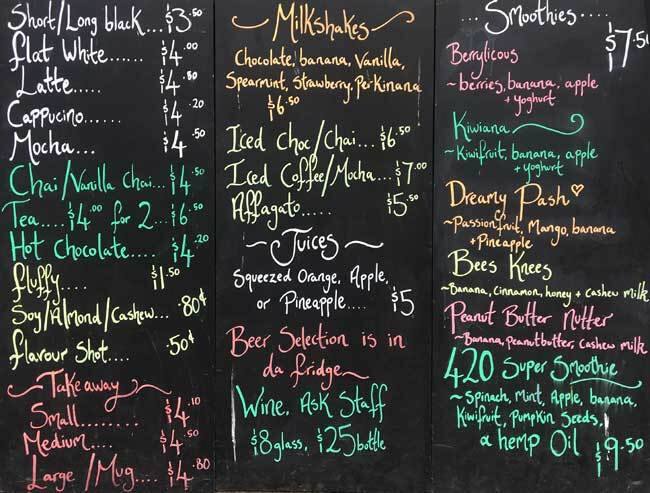 Short/Long black... $3.50
flat White...... $4.00
Latte..... $4.80
Cappucino...... $4.20
Mocha... $4.50
Chai/Vanilla Chai... $4.50
Tea.... $4.00 for 2... $6.50
Hot Chocolate.... $4.20
fluffy.... $1.50
Soy/Almond/Cashew... .80¢
flavour Shot.... .50¢
Take away
Small........ $4.10
Medium.... $4.50
Large/Mug.... $4.80
Milkshakes
Chocolate, banana, Vanilla,
Spearmint, Strawberry, Perkinana
$6.50
Iced Choc/Chai... $6.50
Iced Coffee/Mocha... $7.00
Affagato..... $5.50
Juices
Squeezed Orange, Apple,
or Pineapple.... $5
Beer Selection is in
da fridge~
Wine, Ask Staff
$8 glass, $25 bottle
... Smoothies ...
$7.50
Berrylicous
~berries, banana, apple
+ yoghurt
Kiwiana
~Kiwifruit, banana, apple
+ yoghurt
Dreamy Pash♡
~Passionfruit, Mango, banana
+ Pineapple
Bees Knees
~Banana, cinnamon, honey + cashew milk
Peanut Butter Nutter
~Banana, peanutbutter, cashew milk
420 Super Smoothie
~Spinach, Mint, Apple, banana,
Kiwifruit, Pumpkin Seeds,
a hemp Oil $9.50